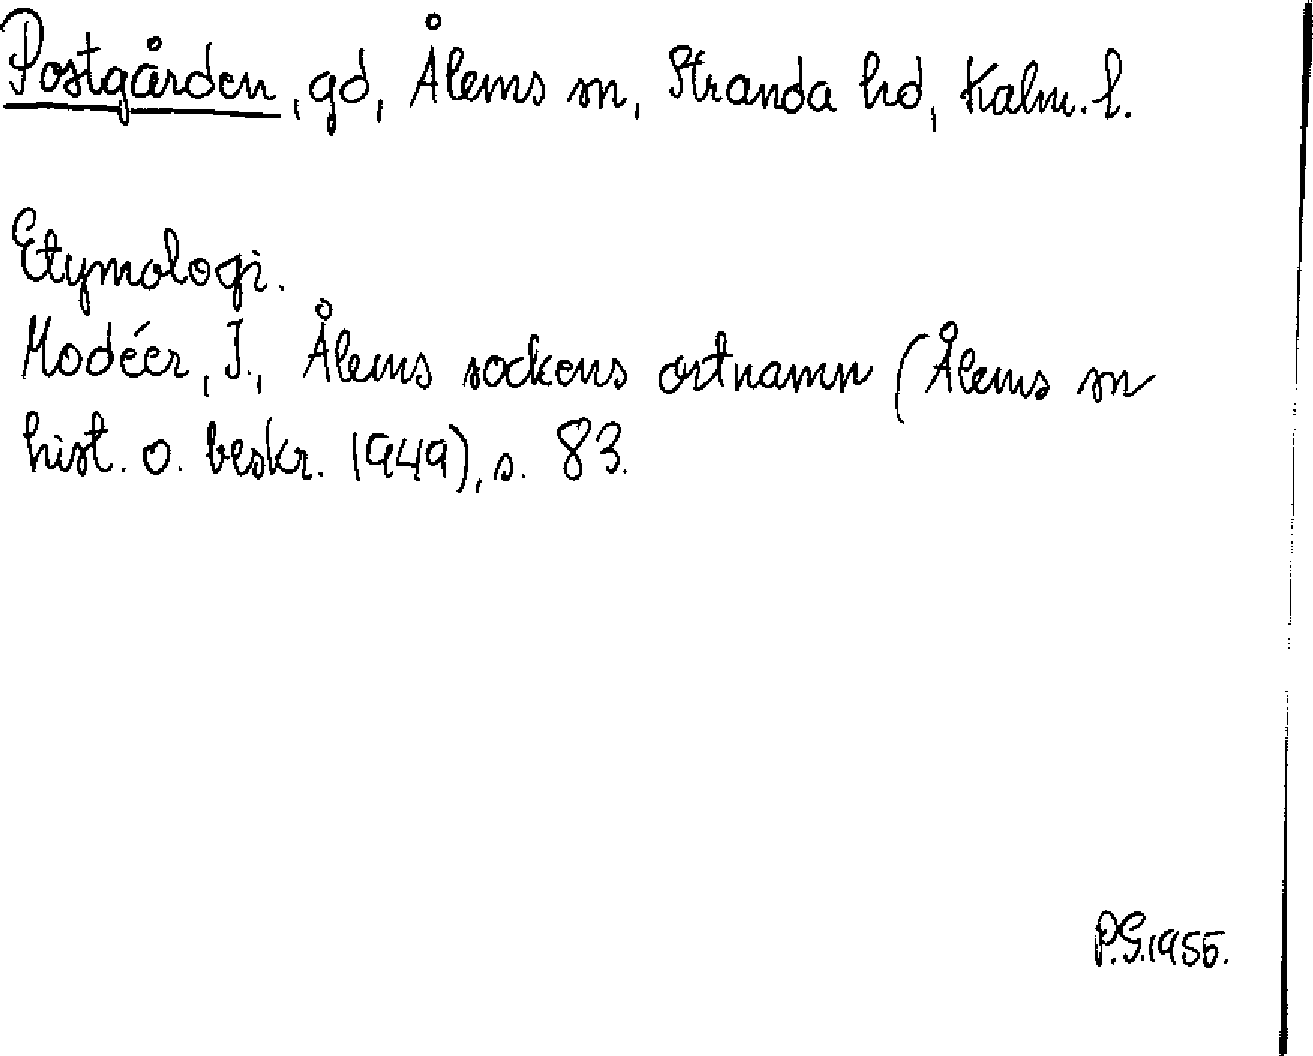 Postgården, gd, Ålems sn, Stranda hd, Kalm. l.
Etymologi.
Modéer, I., Ålems sockens ortnamn (Ålems sn
hist. o. beskr. 1949), s. 83.
P.G.1955.